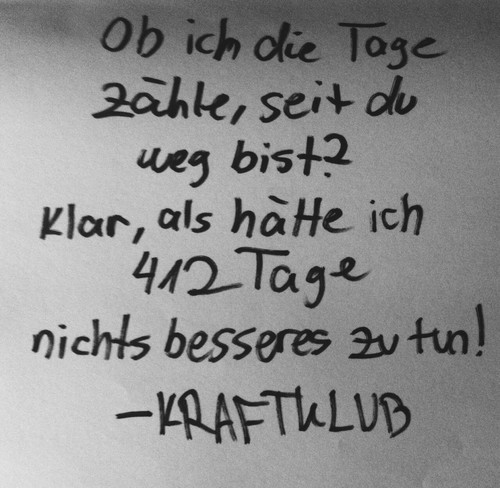 Ob ich die Tage
zähle, seit du
weg bist?
Klar, als hätte ich
412 Tage
nichts besseres zu tun!
-KRAFTKLUB